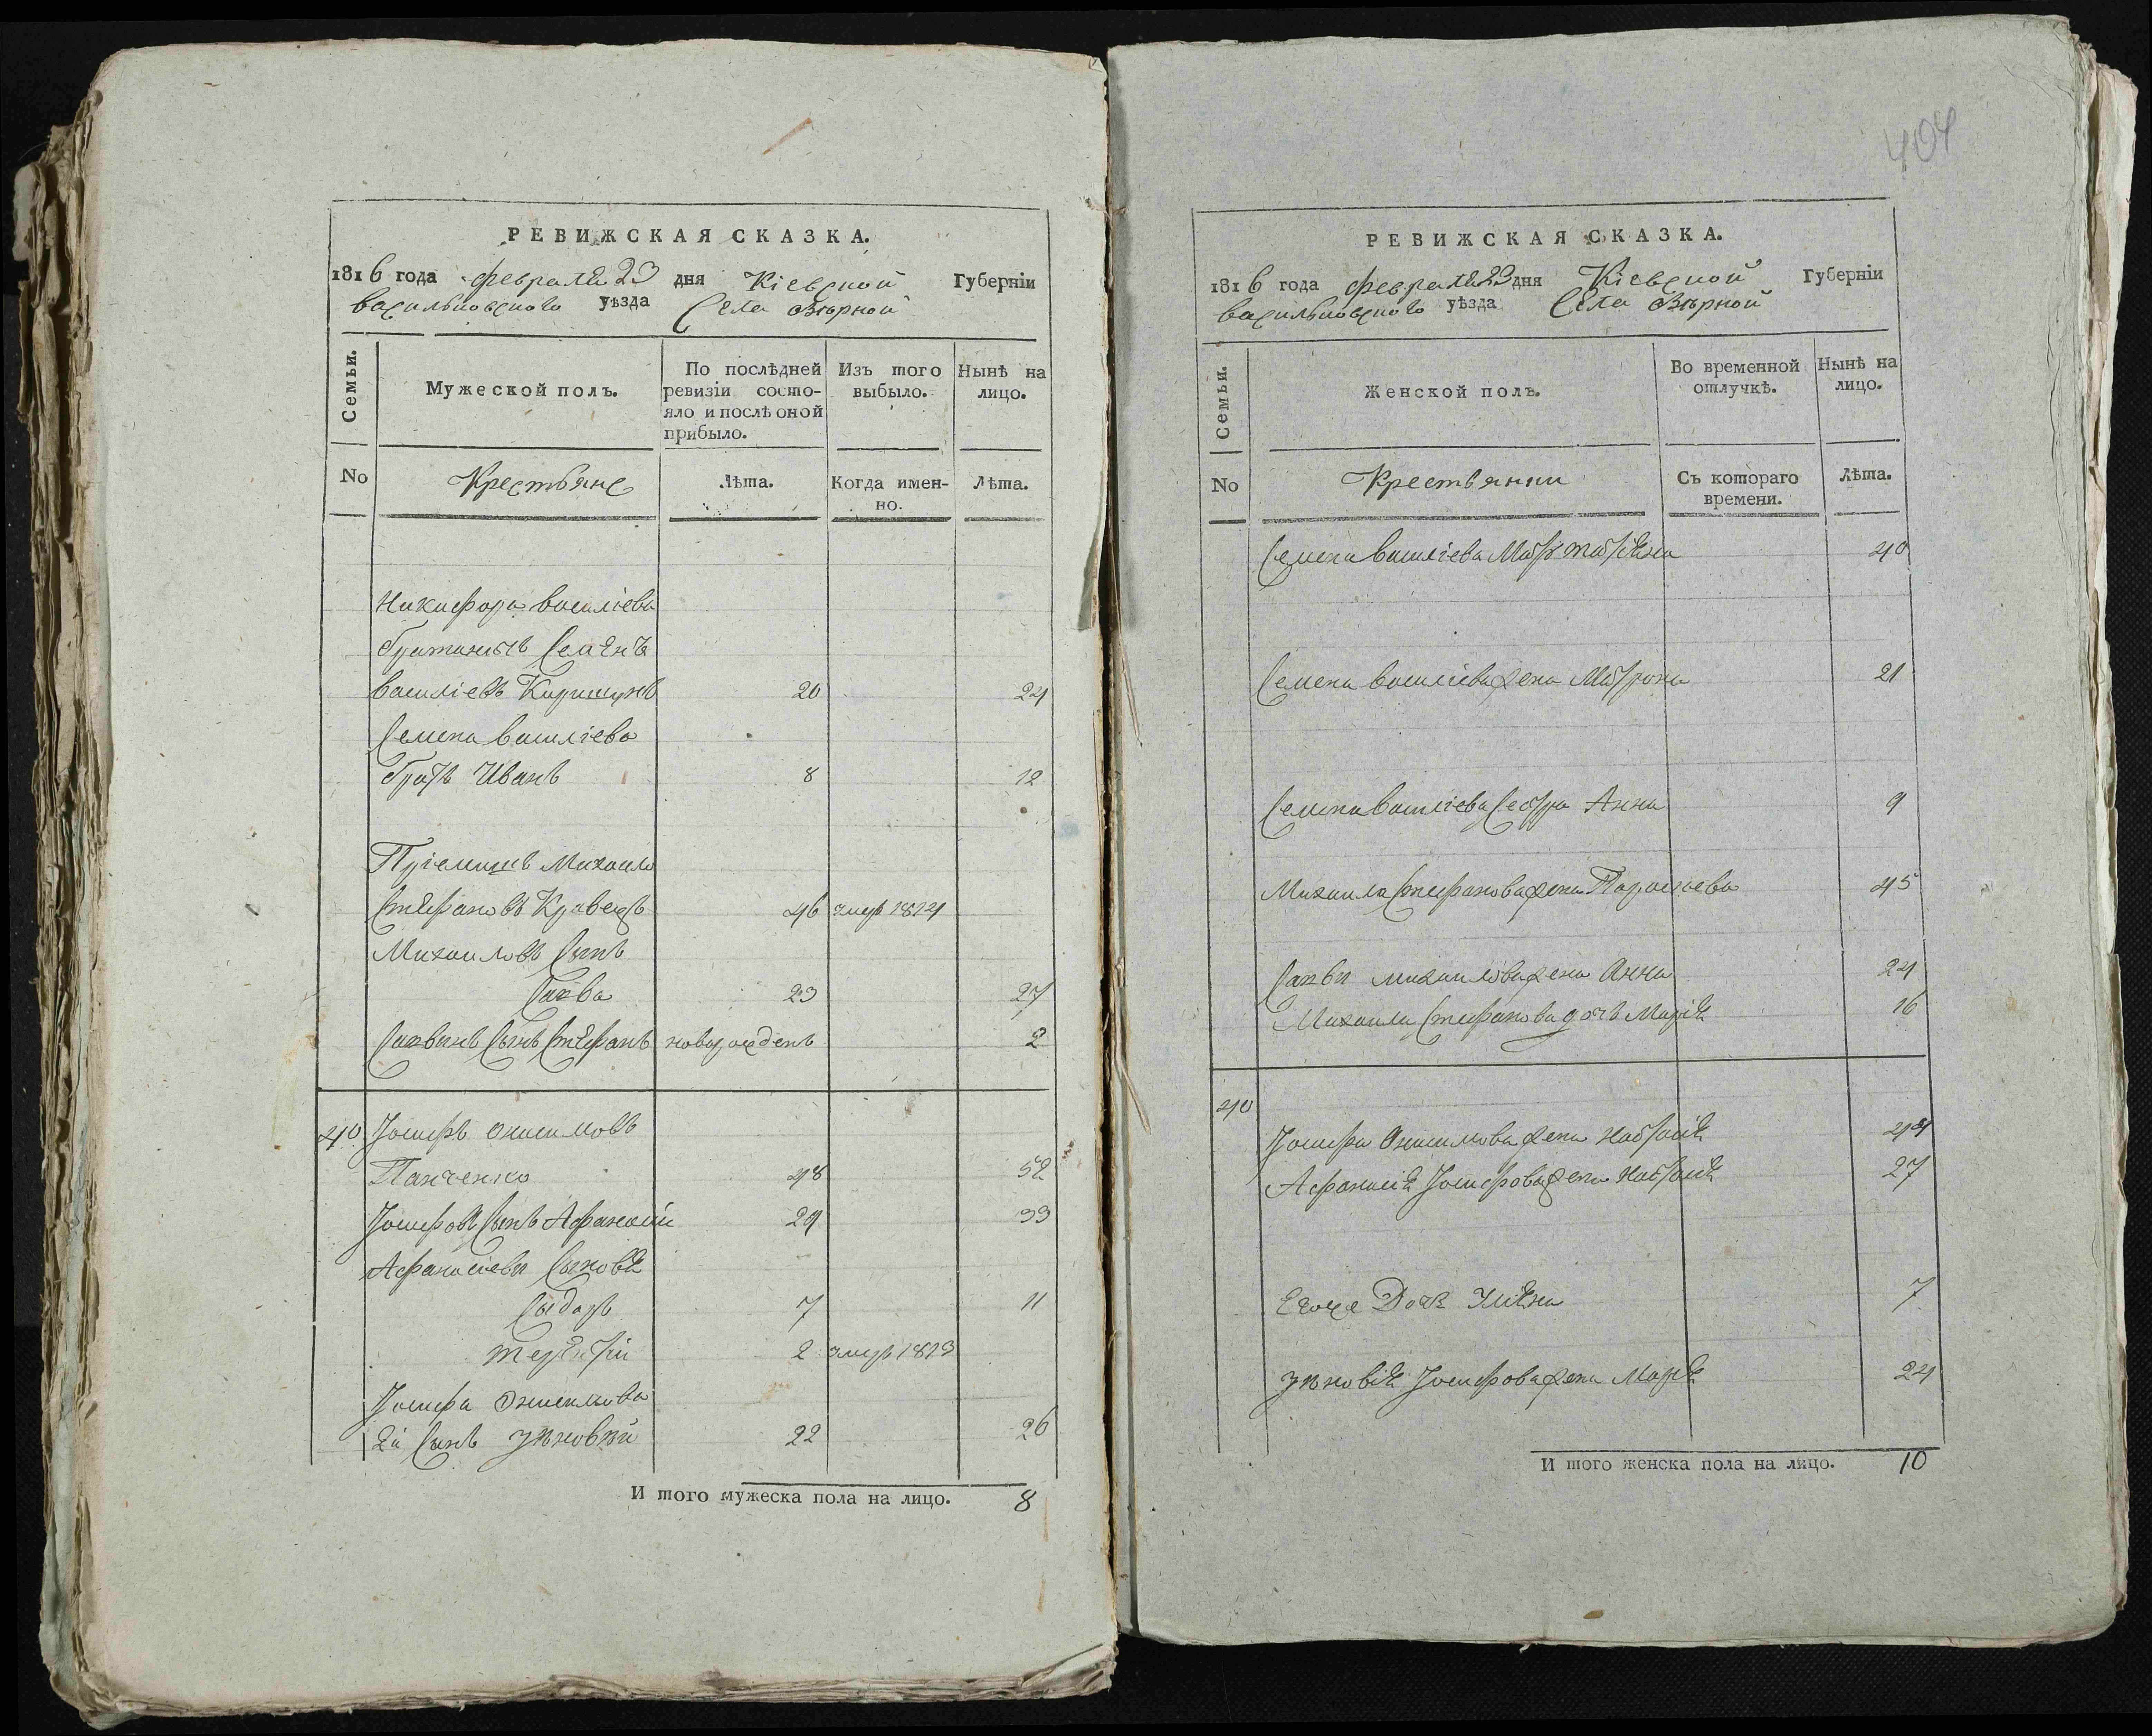 РЕВИЖСКАЯ СКАЗКА.
1816 года февраля 23 дня Кіевской Губерніи
васильковского уѣзда Села
Семьи.
Мужеской полъ.
По послѣдней ревизіи состо-
яло и послѣ оной
прибыло.
Изъ того
выбыло.
Нынѣ на
лицо.
No
Крестьяне
Лѣта.
Когда имен-
но.
Лѣта.
Никифора василіева
Семенъ
василіевъ 20 24
Семена василіева
братъ Иванъ 8 12
Пріемышъ Михаило
Стефановъ Кравецъ 46 умеръ 1814
Михаиловъ сынъ
Савва 23 27
Саввинъ сынъ Стефанъ новорожденъ 2
40 Іосифъ Онисимовъ
Панченко 48 52
Іосифовъ сынъ Афанасій 29 33
Афанасіевы сыновя
Сидоръ 7 11
Терентій 2 умеръ 1813
Іосифа Онисимова
2й сынъ Зѣновій 22 26
И того мужеска пола на лицо. 8
404
РЕВИЖСКАЯ СКАЗКА.
1816 года февраля 23 дня Кіевской Губерніи
васильковского уѣзда Села
Семьи.
Женской полъ.
Во временной
отлучкѣ.
Нынѣ на
лицо.
No
Крестьянки
Съ котораго
времени.
Лѣта.
Семена василіева Мать Татіяна 40
Семена василіева жена Матрона 21
Семена василіева сестра Анна 9
Михаила Стефанова жена Параскева 45
Саввы михаилова жена Анна 24
Михаила Стефанова дочь Марія 16
40
Іосифа Онисимова жена Настасія 49
Афанасія Іосифова жена Настасія 27
Егоже Дочь 7
Зѣновія Іосифова жена Марія 24
И того женска пола на лицо. 10